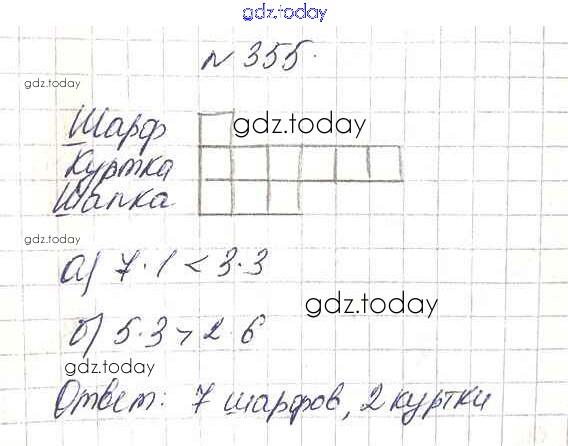 gdz.today
№ 355.
gdz.today
Шарф
gdz.today
Куртка
Шапка
gdz.today
а) 7·1 < 3·3
gdz.today
б) 5·3 > 2·6
gdz.today
Ответ: 7 шарфов, 2 куртки